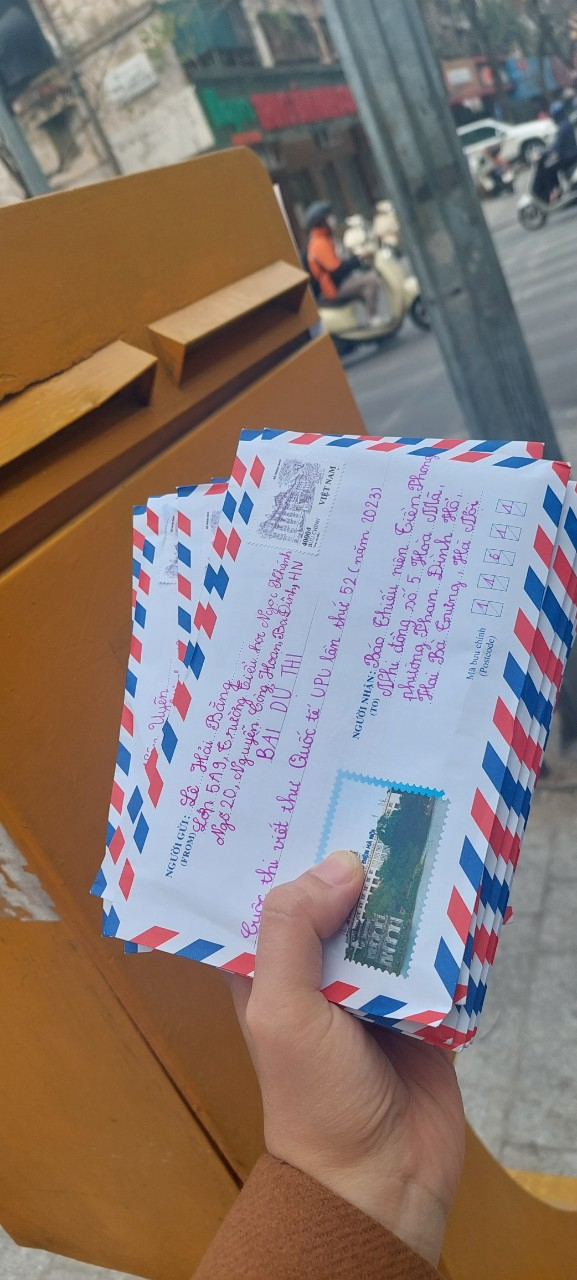 NGƯỜI GỬI: Lê Hải Băng
(FROM) Lớp 5A9, Trường Tiểu học Ngọc Khánh
Ngõ 20, Nguyễn Công Hoan, Ba Đình, HN
VIỆT NAM
4000đ
BÀI DỰ THI
Cuộc thi viết thư Quốc tế UPU lần thứ 52 (năm 2023)
NGƯỜI NHẬN: Báo Thiếu niên Tiền Phong
(TO) Nhi đồng số 5 Hoà Mã,
phường Phạm Đình Hổ,
Hai Bà Trưng, Hà Nội
Mã bưu chính
(Postcode)
1 1 6 1 1
Uyên